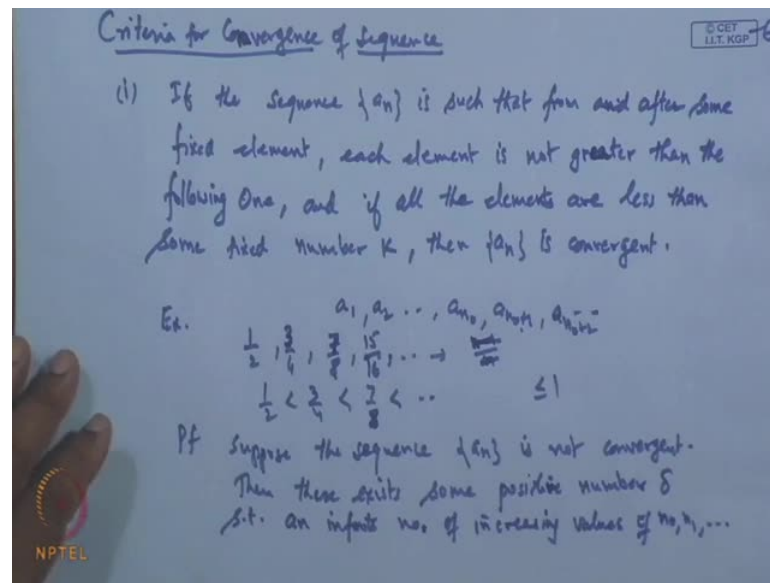 Criteria for Convergence of Sequence
© CET
I.I.T. KGP
(i) If the sequence {an} is such that from and after some
fixed element, each element is not greater than the
following One, and if all the elements are less than
some fixed number K, then {an} is convergent.
a1, a2 .., an0, an0+1, an0+2 --
Ex. 1/2, 3/4, 7/8, 15/16, .. →
1/2 < 3/4 < 7/8 < .. ≤ 1
Pf Suppose the sequence {an} is not convergent.
Then there exists some positive number δ
s.t. an infinite no. of increasing values of n0, n1, ...
NPTEL